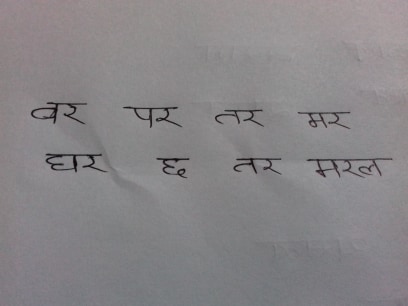 बर पर तर मर
घर छ तर मरल